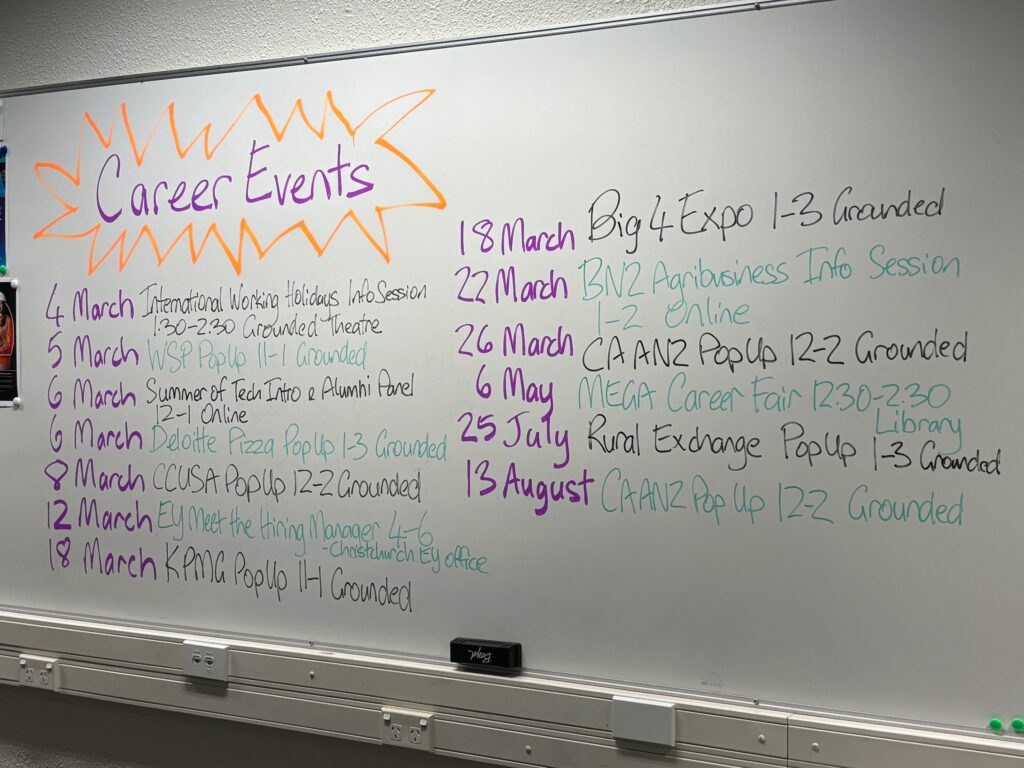 Career Events
4 March International Working Holidays Info Session
1:30-2:30 Grounded Theatre
5 March WSP PopUp 11-1 Grounded
6 March Summer of Tech Intro & Alumni Panel
12-1 Online
6 March Deloitte Pizza PopUp 1-3 Grounded
8 March CCUSA PopUp 12-2 Grounded
12 March EY Meet the Hiring Manager 4-6
-Christchurch EY office
18 March KPMG PopUp 11-1 Grounded
18 March Big 4 Expo 1-3 Grounded
22 March BNZ Agribusiness Info Session
1-2 Online
26 March CA ANZ PopUp 12-2 Grounded
6 May MEGA Career Fair 12:30-2:30
Library
25 July Rural Exchange PopUp 1-3 Grounded
13 August CA ANZ Pop Up 12-2 Grounded
Boyd